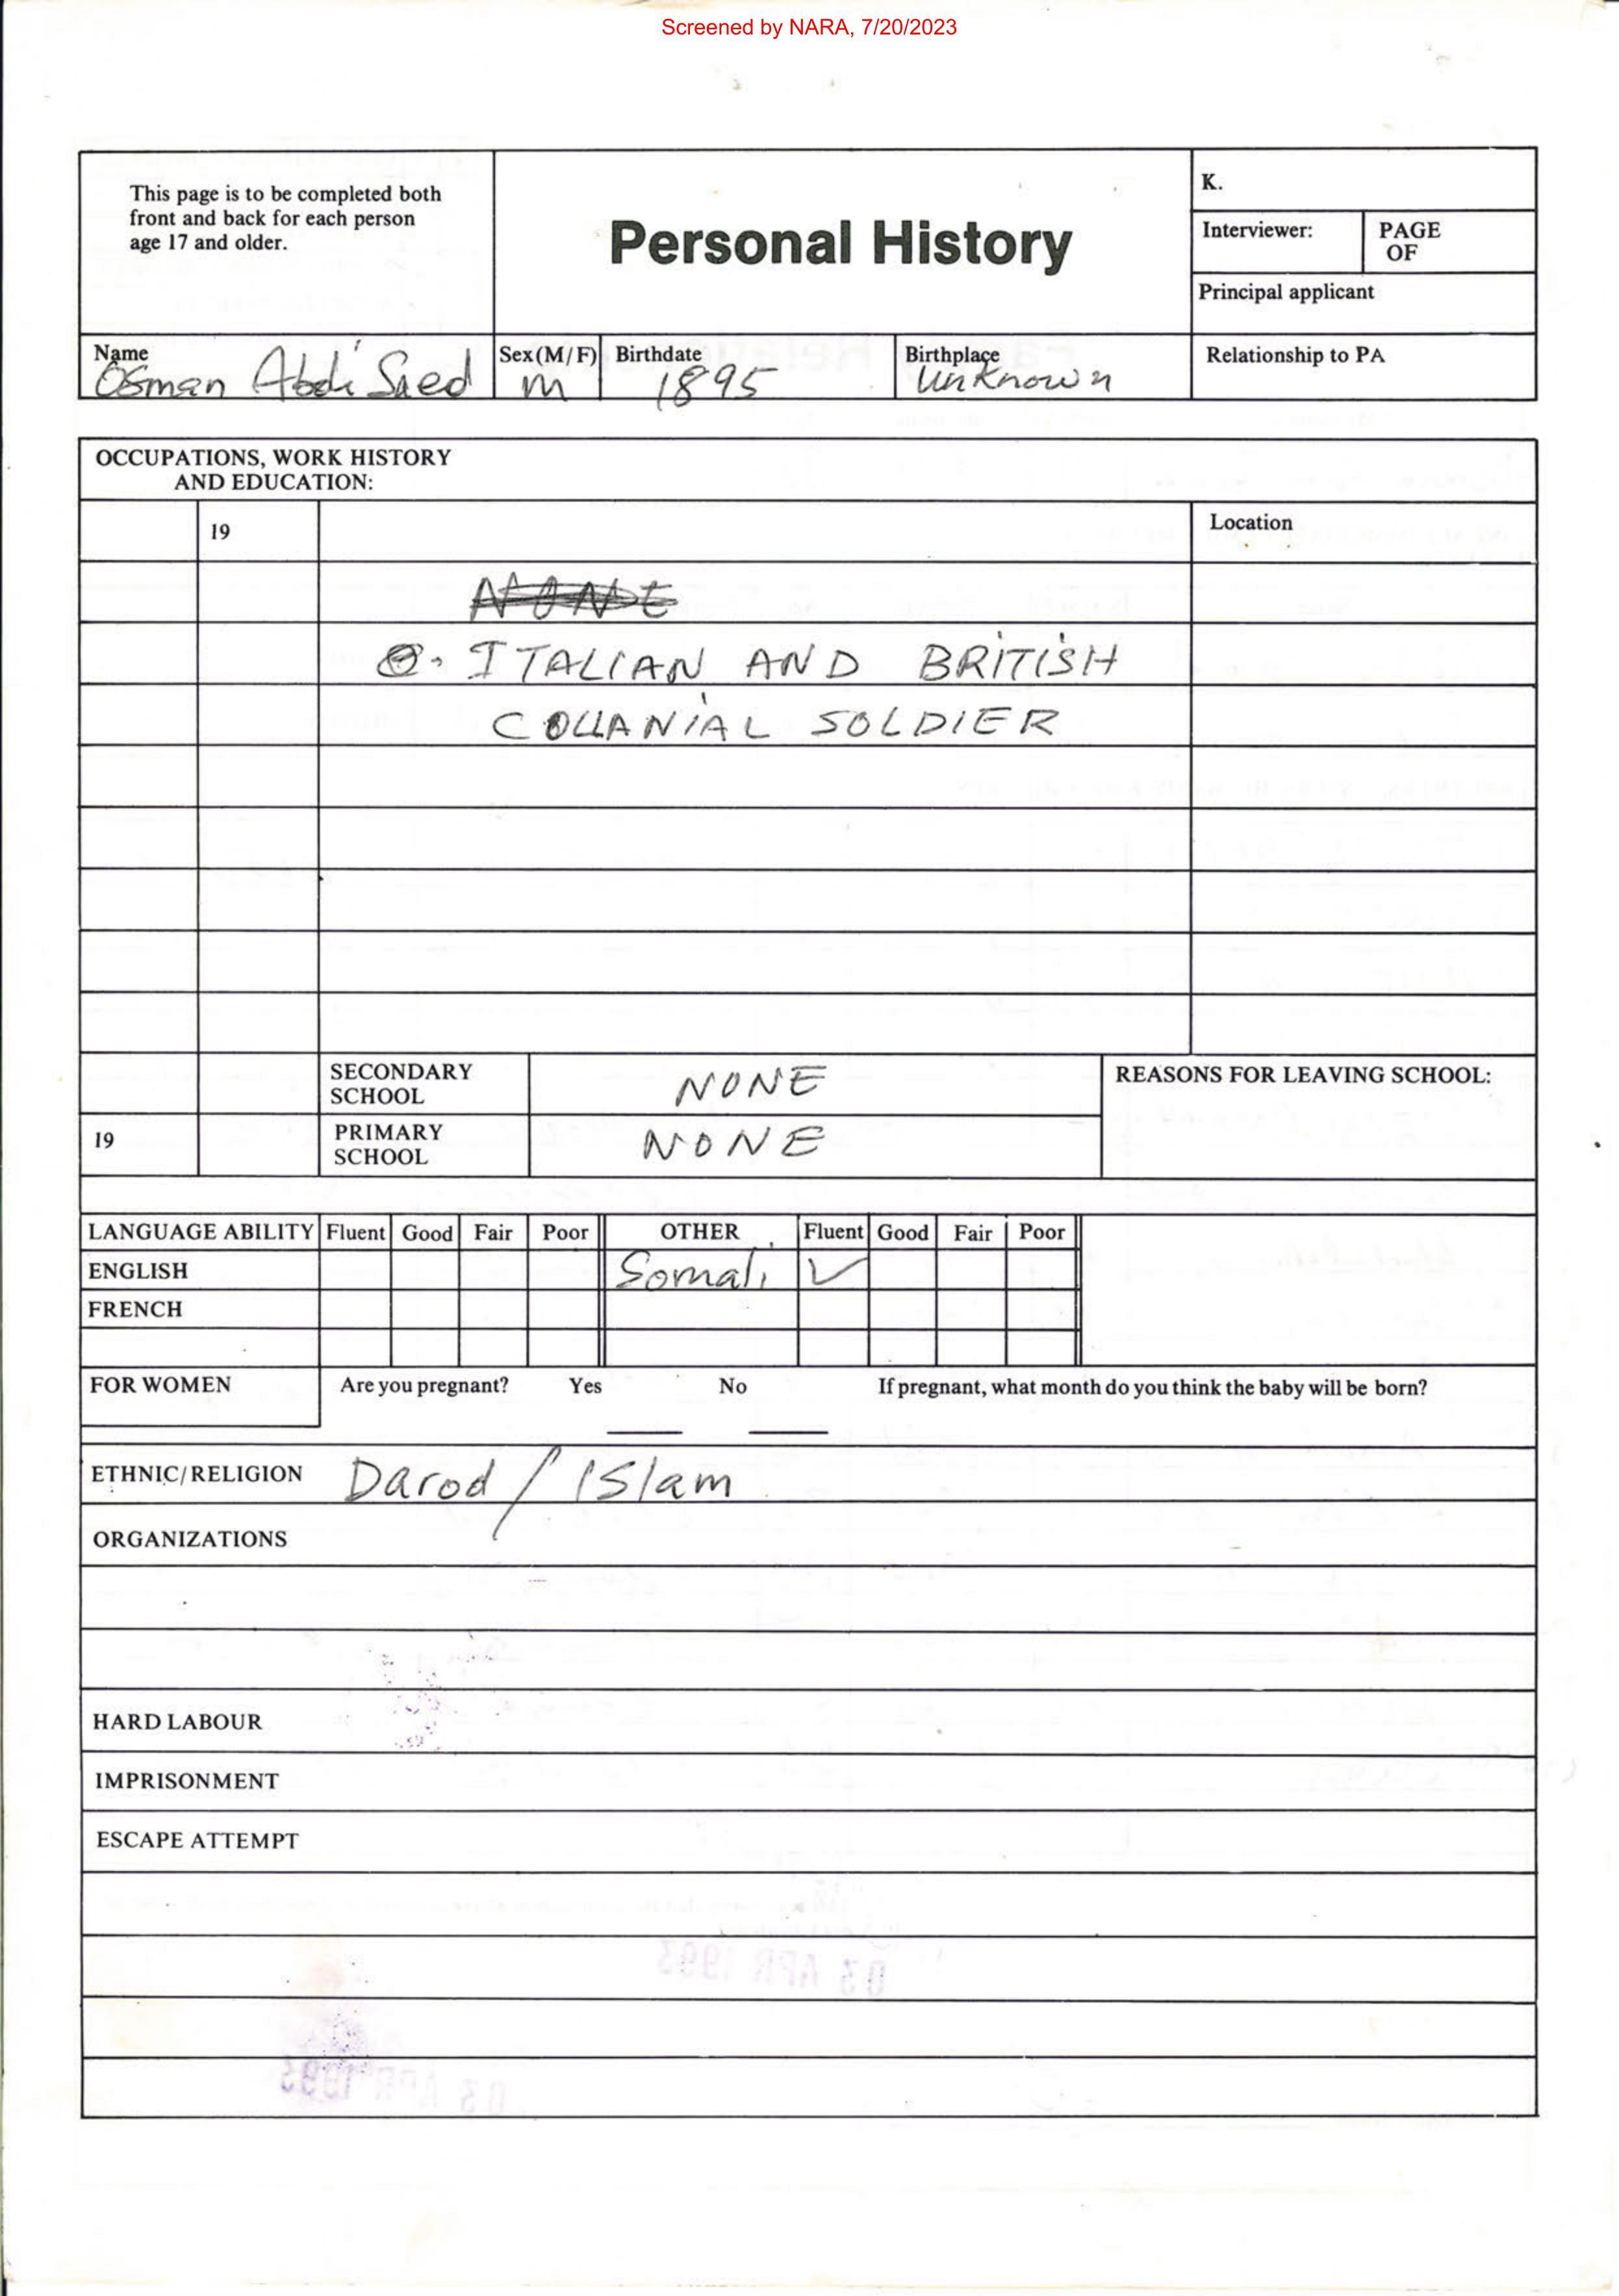 Screened by NARA, 7/20/2023
This page is to be completed both
front and back for each person
age 17 and older.
Personal History
K.
Interviewer:
PAGE
OF
Principal applicant
Name Osman Abdi Saed
Sex (M/F) m
Birthdate 1895
Birthplace unknown
Relationship to PA
OCCUPATIONS, WORK HISTORY
AND EDUCATION:
19
Location
NONE
ITALIAN AND BRITISH
COLLANIAL SOLDIER
SECONDARY
SCHOOL
NONE
REASONS FOR LEAVING SCHOOL:
19
PRIMARY
SCHOOL
NONE
LANGUAGE ABILITY Fluent Good Fair Poor OTHER Fluent Good Fair Poor
ENGLISH Somali ✓
FRENCH
FOR WOMEN Are you pregnant? Yes No If pregnant, what month do you think the baby will be born?
ETHNIC/RELIGION Darod / Islam
ORGANIZATIONS
HARD LABOUR
IMPRISONMENT
ESCAPE ATTEMPT
03 APR 1993
03 APR 1993